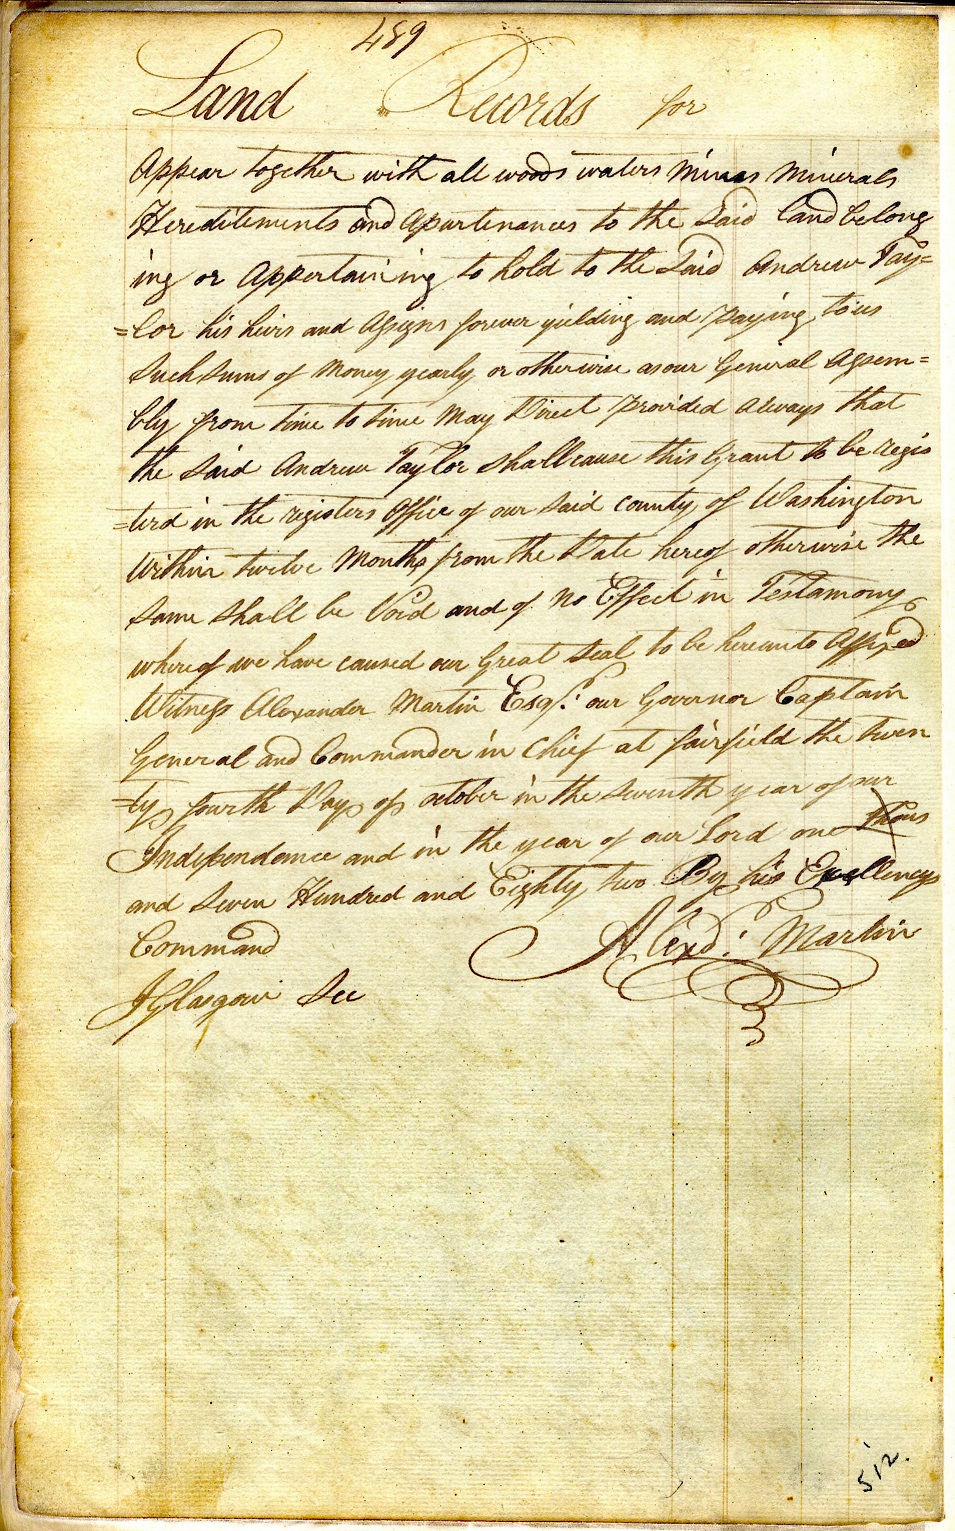 489
Land Records for
Appear together with all woods waters Mines Minerals
Hereditements and Apurtenances to the Said land belong
ing or Appertaining to hold to the Said Andrew Tay=
=lor his heirs and Assigns forever yielding and Paying to us
Such Sums of Money yearly or otherwise as our General Assem=
bly from time to time May Direct Provided Always that
the Said Andrew Taylor shall cause this Grant to be regis
=terd in the registers Office of our Said county of Washington
Within twelve Months from the Date hereof otherwise the
Same Shall be Void and of No Effect in Testamony
whereof we have caused our Great Seal to be hereunto Affixed
Witness Alexander Martin Esqr. our Governor Captain
General and Commander in Chief at fairfield the twen
=ty fourth Day of october in the Seventh year of our
Independance and in the year of our Lord one thous
and Seven Hundred and Eighty two By his Excellencys
Command Alexd. Martin
J Glasgow Sec
512.